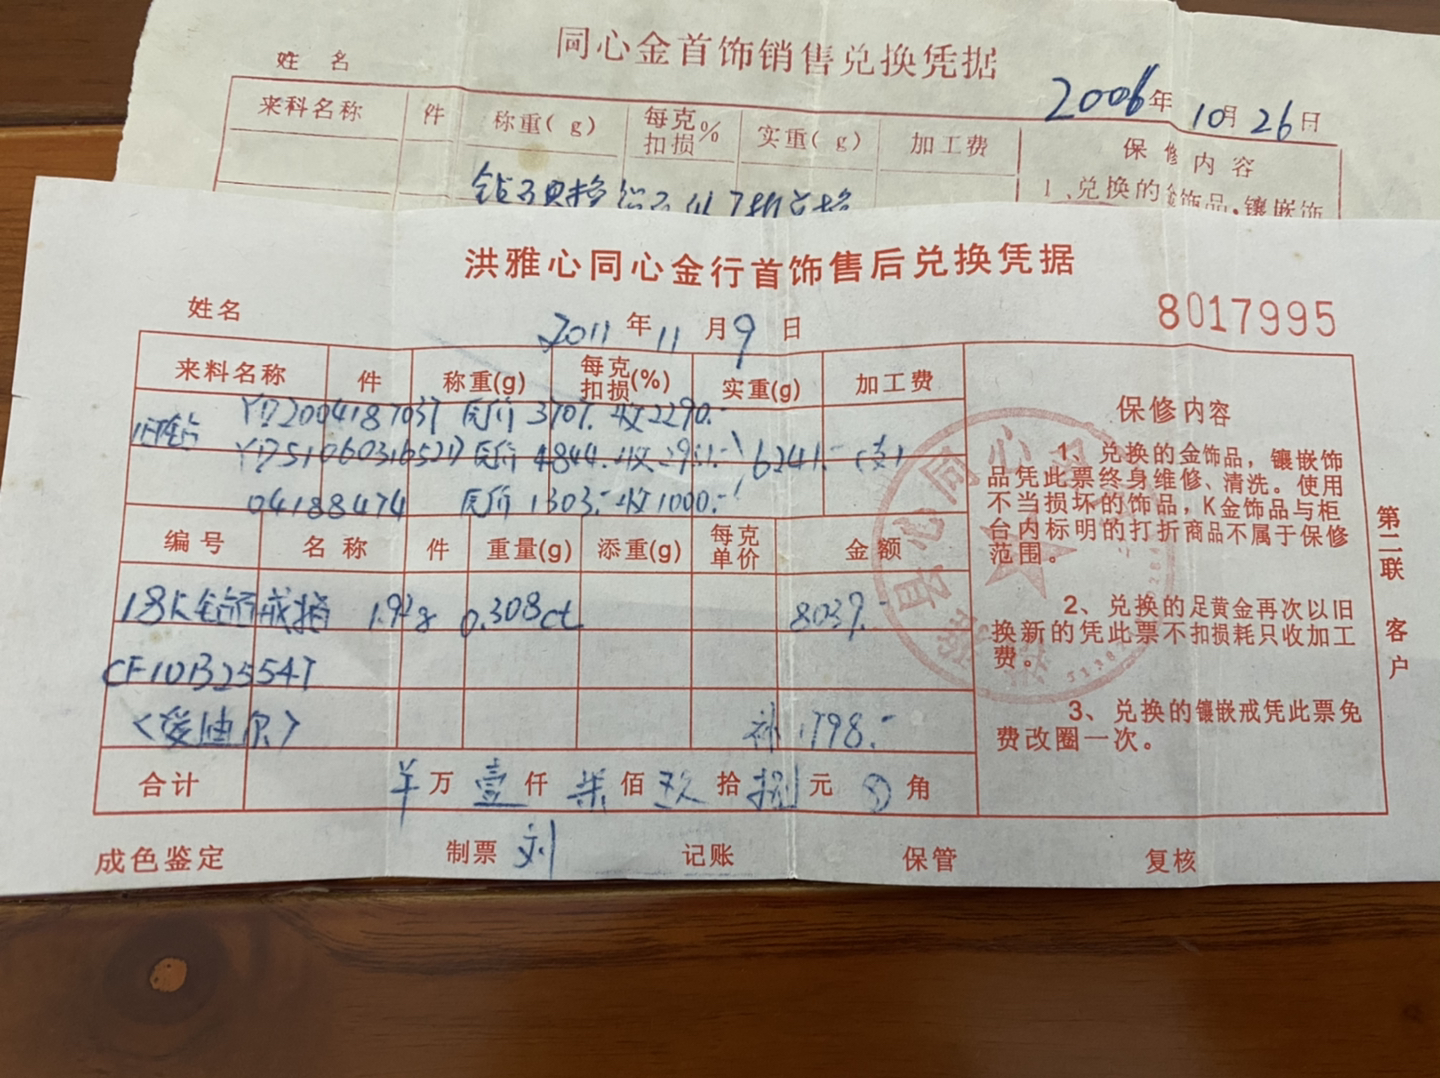 同心金首饰销售兑换凭据
姓 名
2006年 10月26日
来料名称 件 称重(g) 每克扣损% 实重(g) 加工费 保修内容
1、兑换的金饰品,镶嵌饰
洪雅心同心金行首饰售后兑换凭据
姓名 2011年11月9日 8017995
来料名称 件 称重(g) 每克扣损(%) 实重(g) 加工费
旧钻 YD2004187037 原价3707.收2290.-
原价4844.收 6241.-
04188474 原价1303.-收1000.-
编号 名称 件 重量(g) 添重(g) 每克单价 金额
18K 戒指 0.308ct 8039.-
CF10B25547
<爱迪尔> 补1798.-
合计 万壹仟柒佰玖拾捌元 角
成色鉴定 制票 刘 记账 保管 复核
保修内容
1、兑换的金饰品,镶嵌饰
品凭此票终身维修、清洗。使用
不当损坏的饰品,K金饰品与柜
台内标明的打折商品不属于保修
范围。
2、兑换的足黄金再次以旧
换新的凭此票不扣损耗只收加工
费。
3、兑换的镶嵌戒凭此票免
费改圈一次。
第二联 客户